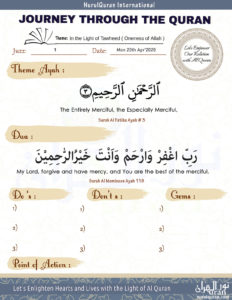 NurulQuran International
JOURNEY THROUGH THE QURAN
Theme: In the Light of Tawheed ( Oneness of Allah )
Juzz: 1 Date: Mon 25th Apr'2020
Let's Engineer
Our Relation
with Al Quran
Theme Ayah :
ٱلرَّحْمَٰنِ ٱلرَّحِيمِ ٣
The Entirely Merciful, the Especially Merciful,
Surah Al Fatiha Ayah # 3
Dua :
رَبِّ اغْفِرْ وَارْحَمْ وَأَنْتَ خَيْرُ الرَّاحِمِيْنَ
My Lord, forgive and have mercy, and You are the best of the merciful.
Surah Al Mominoon Ayah 118
Do 's : Don't s : Gems :
1) 1) 1)
2) 2) 2)
3) 3) 3)
Point of Action :
Let's Enlighten Hearts and Lives with the Light of Al Quran
نور القرآن